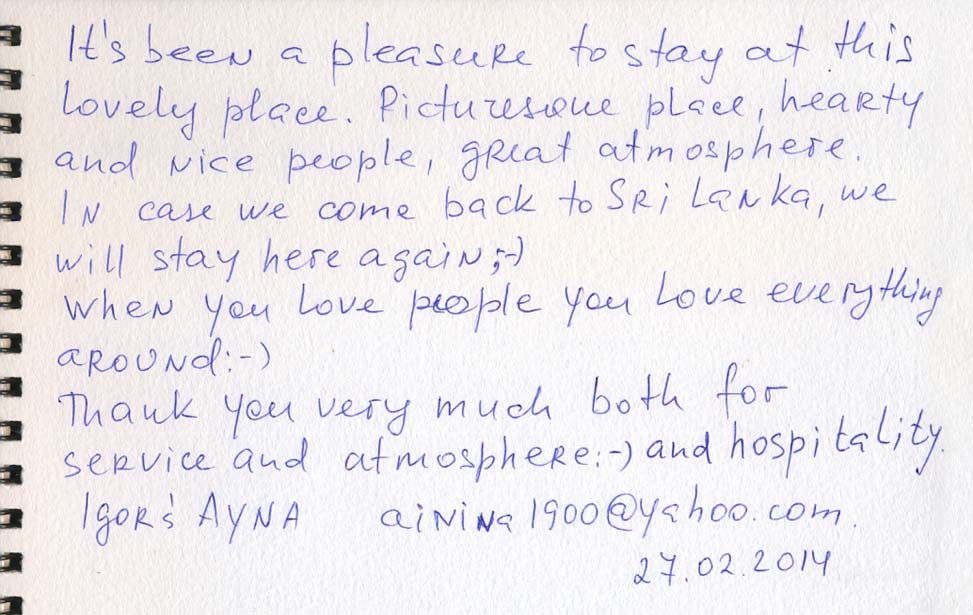 It's been a pleasure to stay at this
lovely place. Picturesque place, hearty
and nice people, great atmosphere.
In case we come back to Sri Lanka, we
will stay here again ;-)
When you love people you love everything
around :-)
Thank you very much both for
service and atmosphere :-) and hospitality.
Igor & AYNA ainina1900@yahoo.com.
27.02.2014